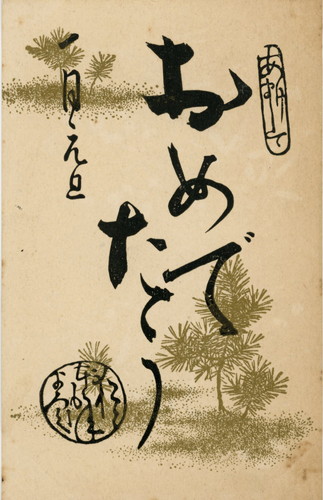 あけまして
おめで
たう
一月元旦